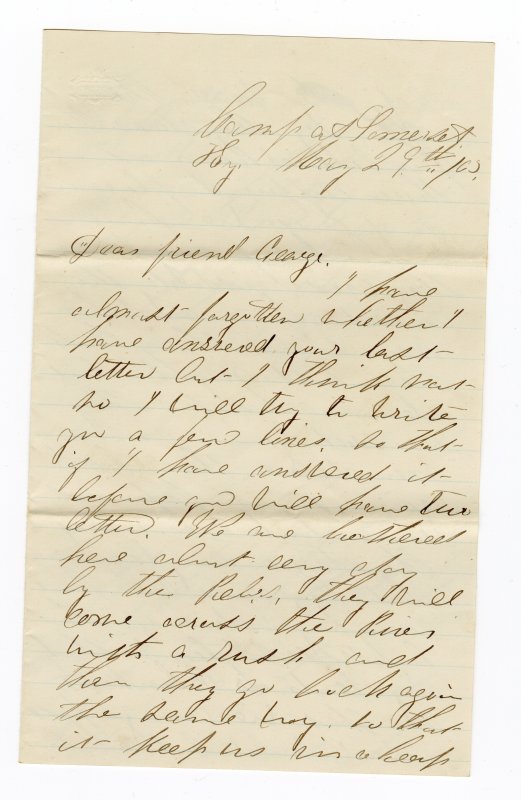 Camp at Somerset
Ky. May 29th /63.
Dear friend George.
I have
almost forgotten whether I
have ansered your last
letter but I think not
so I will try to write
you a few lines. so that
if I have ansered it
before you will have two
letter. We are bothered
here about evry day
by the Rebs, they will
come across the River
with a rush and
then they go back again
the same way. so that
it keep us in a heap